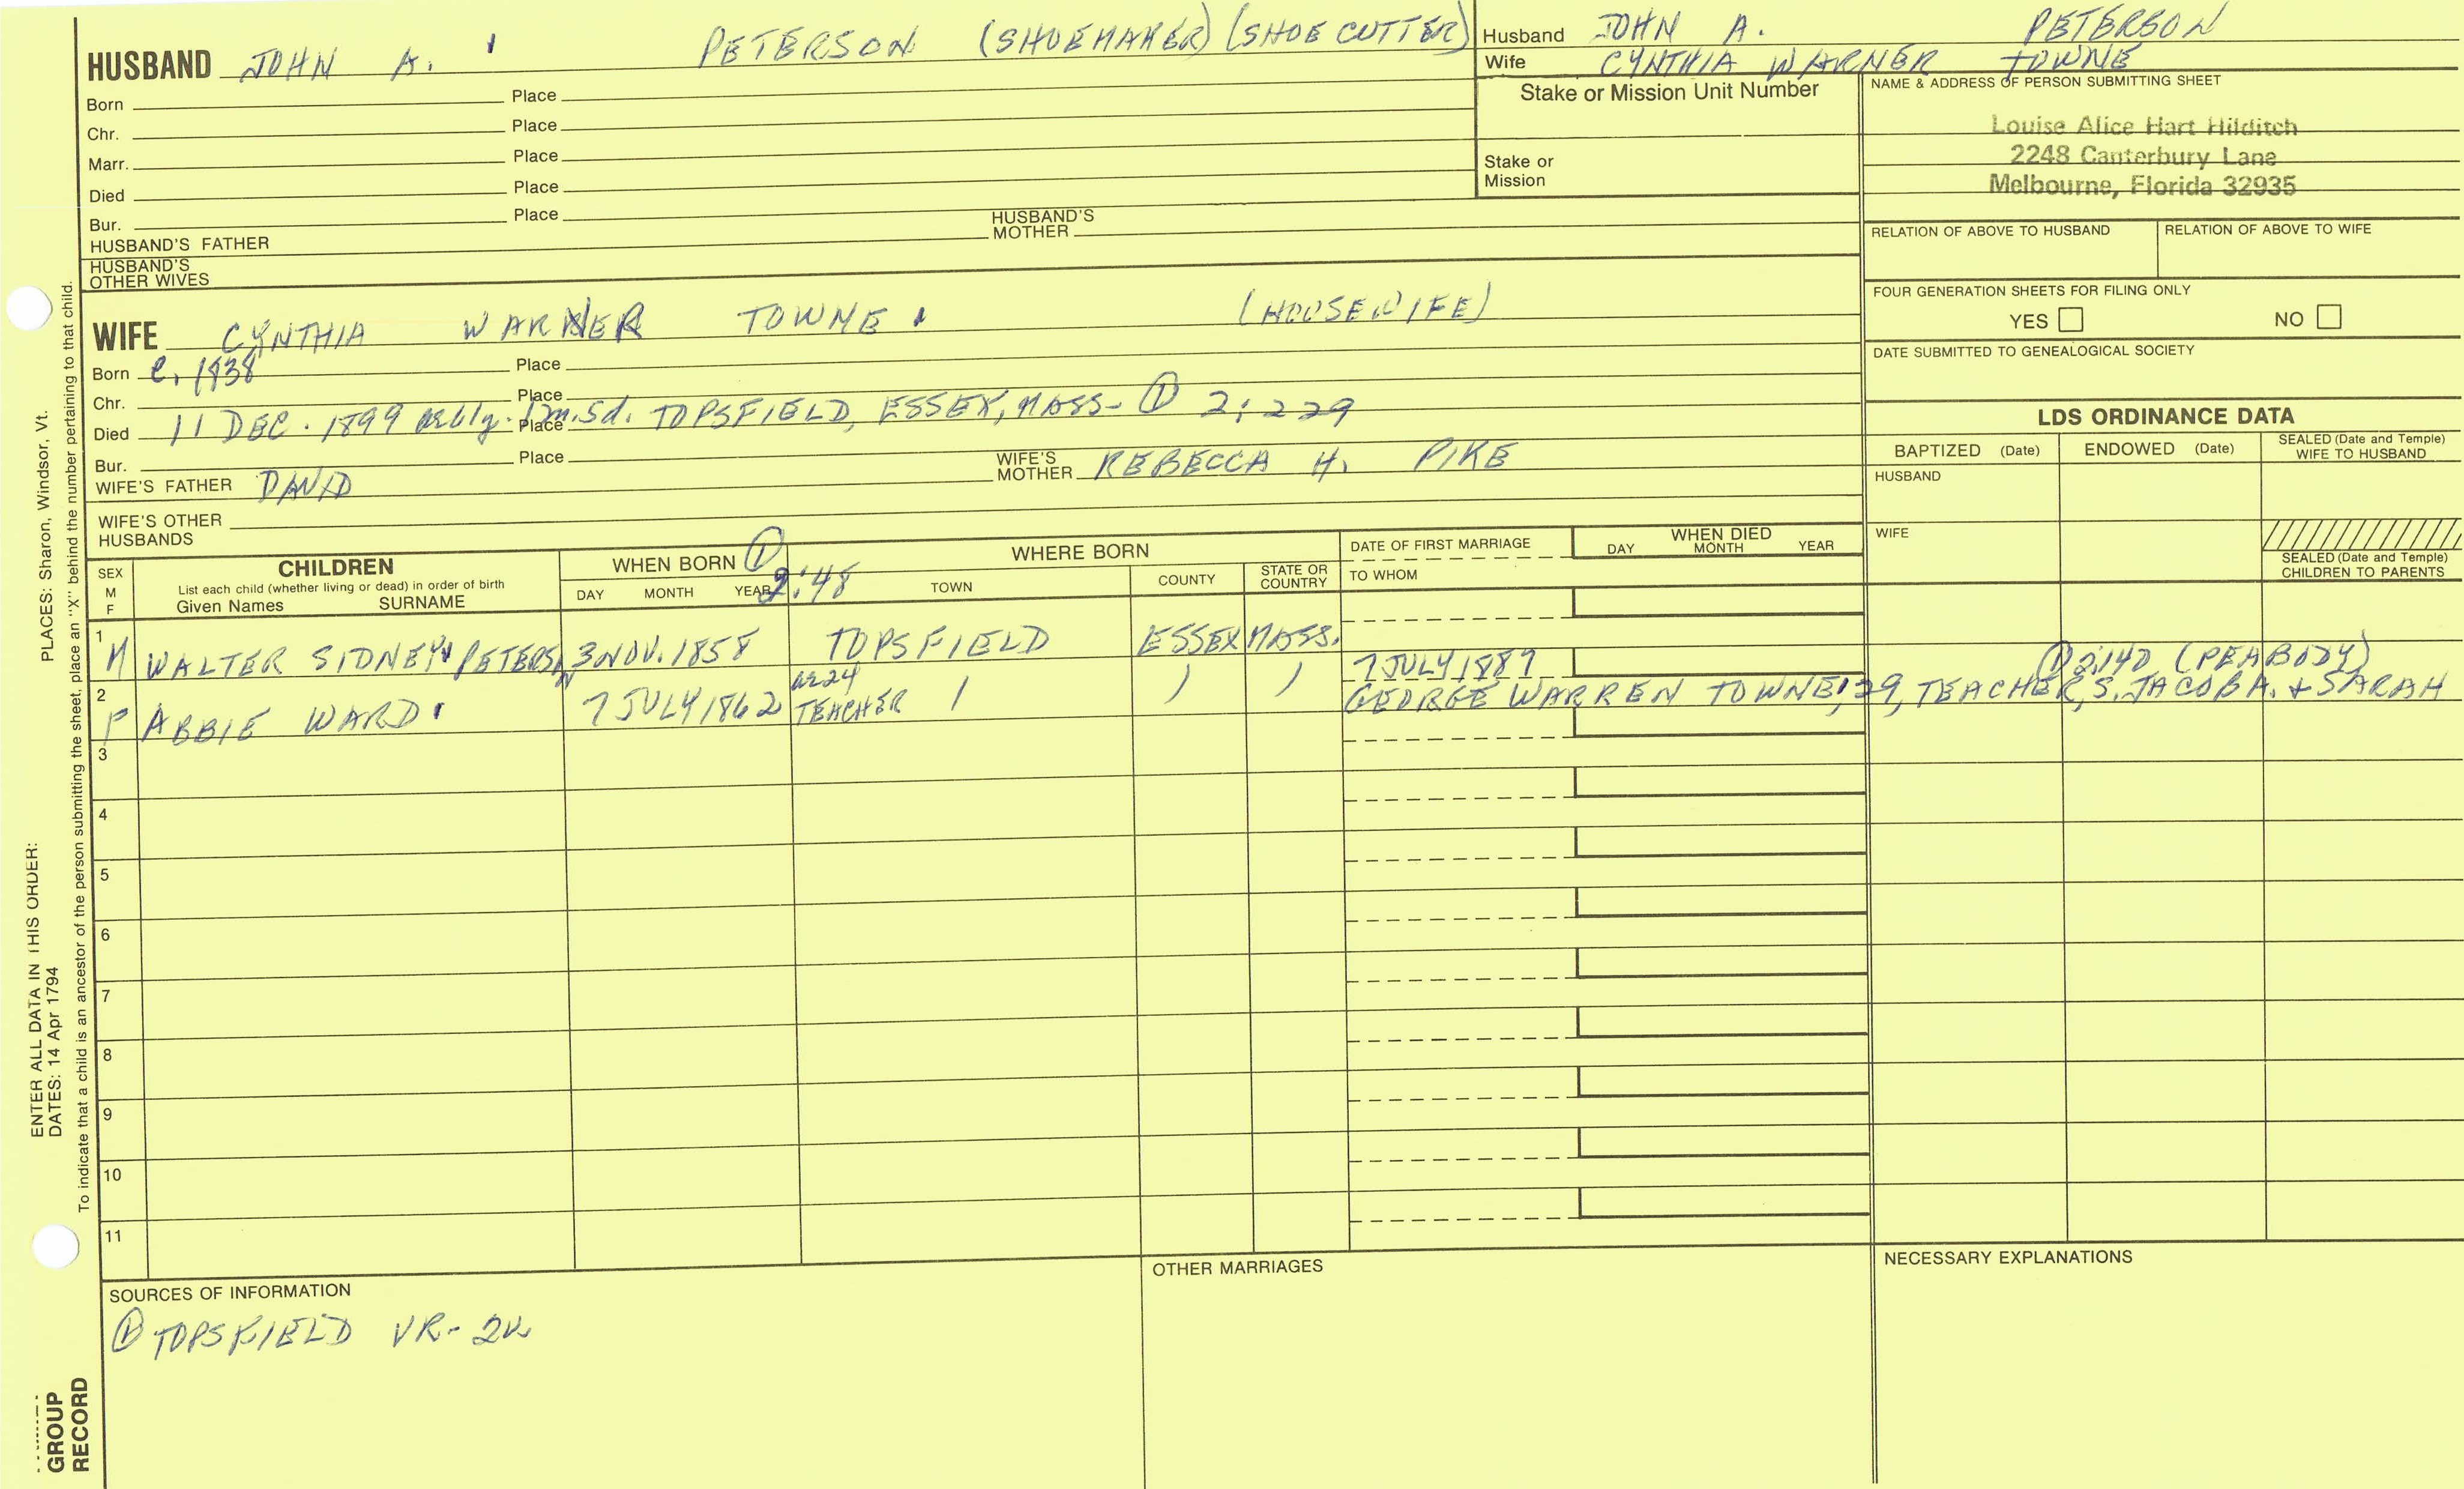 HUSBAND JOHN A. PETERSON (SHOEMAKER) (SHOE CUTTER)
Born Place
Chr. Place
Marr. Place
Died Place
Bur. Place
HUSBAND'S FATHER HUSBAND'S MOTHER
HUSBAND'S OTHER WIVES
Husband JOHN A. PETERSON
Wife CYNTHIA WARNER TOWNE
Stake or Mission Unit Number
Stake or Mission
NAME & ADDRESS OF PERSON SUBMITTING SHEET
Louise Alice Hart Hilditch
2248 Canterbury Lane
Melbourne, Florida 32935
RELATION OF ABOVE TO HUSBAND RELATION OF ABOVE TO WIFE
FOUR GENERATION SHEETS FOR FILING ONLY
YES NO
DATE SUBMITTED TO GENEALOGICAL SOCIETY
WIFE CYNTHIA WARNER TOWNE (HOUSEWIFE)
Born C. 1838 Place
Chr. Place
Died 11 DEC. 1899 Place TOPSFIELD, ESSEX, MASS- ① 2:229
Bur. Place
WIFE'S FATHER DAVID WIFE'S MOTHER REBECCA H. PIKE
WIFE'S OTHER HUSBANDS
LDS ORDINANCE DATA
BAPTIZED (Date) ENDOWED (Date) SEALED (Date and Temple) WIFE TO HUSBAND
HUSBAND
WIFE
SEALED (Date and Temple) CHILDREN TO PARENTS
SEX M F
CHILDREN
List each child (whether living or dead) in order of birth
Given Names SURNAME
WHEN BORN ① 2:48
DAY MONTH YEAR
WHERE BORN
TOWN COUNTY STATE OR COUNTRY
DATE OF FIRST MARRIAGE
TO WHOM
WHEN DIED
DAY MONTH YEAR
1 M WALTER SIDNEY PETERSON 3 NOV. 1858 TOPSFIELD ESSEX MASS.
7 JULY 1887 ① 2:140 (PEABODY)
2 F ABBIE WARD 7 JULY 1862 ae 24 TEACHER GEORGE WARREN TOWNE, 29, TEACHER, S. JACOB A. + SARAH
3
4
5
6
7
8
9
10
11
SOURCES OF INFORMATION
① TOPSFIELD VR- 2v.
OTHER MARRIAGES
NECESSARY EXPLANATIONS
PLACES: Sharon, Windsor, Vt.
ENTER ALL DATA IN THIS ORDER:
DATES: 14 Apr 1794
To indicate that a child is an ancestor of the person submitting the sheet, place an "X" behind the number pertaining to that child.
GROUP
RECORD